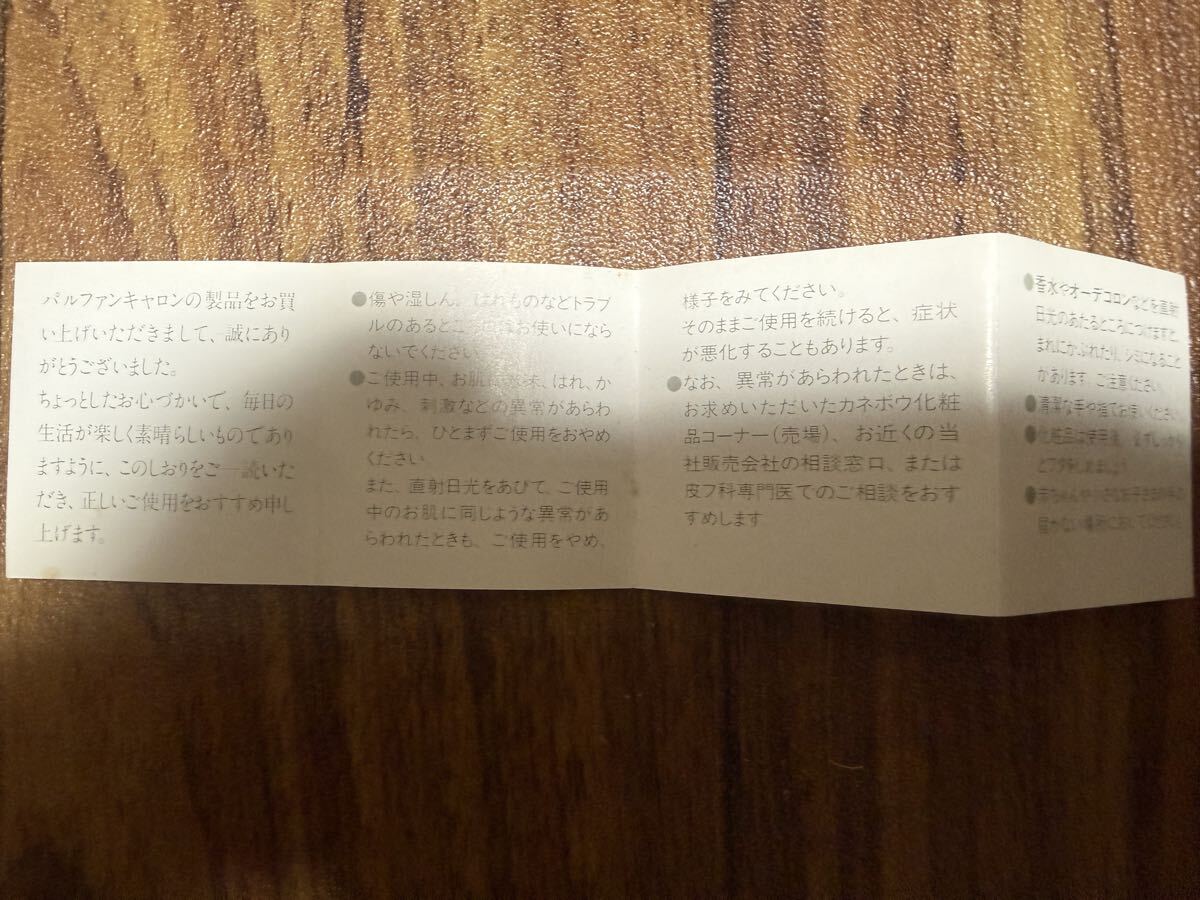 パルファンキャロンの製品をお買
い上げいただきまして、誠にあり
がとうございました。
ちょっとしたお心づかいで、毎日の
生活が楽しく素晴らしいものであり
ますように、このしおりをご一読いた
だき、正しいご使用をおすすめ申し
上げます。
●傷や湿しん、はれものなどトラブ
ルのあるところにはお使いになら
ないでください。
●ご使用中、お肌に赤味、はれ、か
ゆみ、刺激などの異常があらわ
れたら、ひとまずご使用をおやめ
ください
また、直射日光をあびて、ご使用
中のお肌に同じような異常があ
らわれたときも、ご使用をやめ、
様子をみてください。
そのままご使用を続けると、症状
が悪化することもあります。
●なお、異常があらわれたときは、
お求めいただいたカネボウ化粧
品コーナー(売場)、お近くの当
社販売会社の相談窓口、または
皮フ科専門医てのご相談をおす
すめします
●香水やオーデコロンなどを直射
日光のあたるところにつけますと、
まれにかぶれたり、シミになること
があります。ご注意ください。
●清潔な手や指でお使いください
●化粧品は使用後、必ずしっかり
とフタをしめましょう
●赤ちゃんや小さなお子さまの手の
届かない場所において